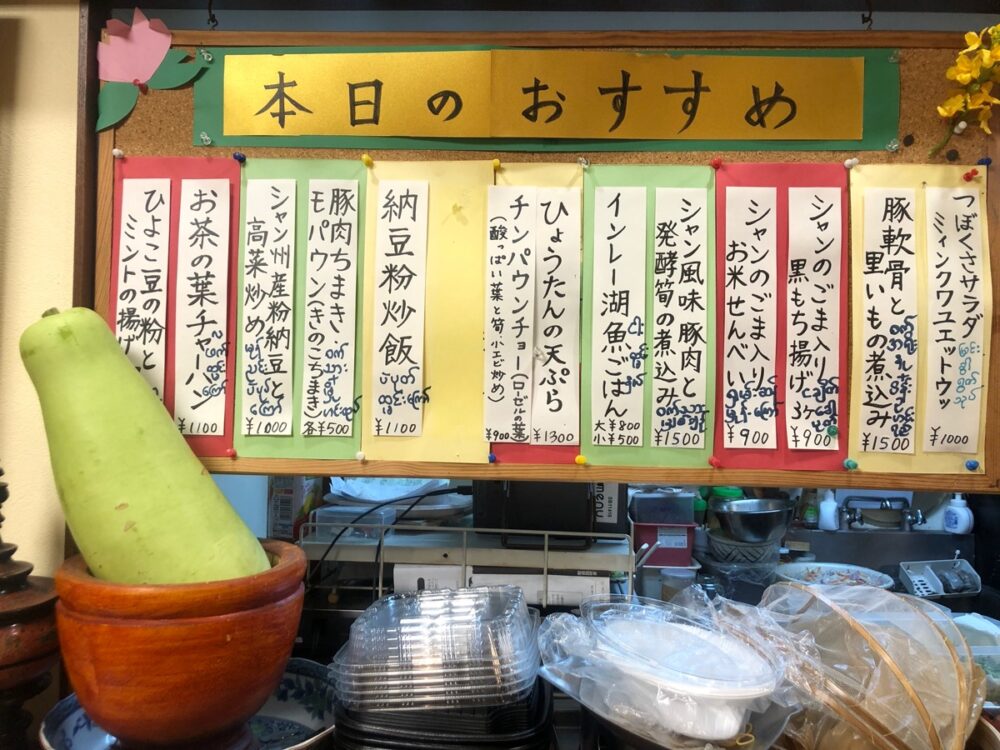 本日のおすすめ
つぼくさサラダ
ミィンクワユエットウッ
¥1000
豚軟骨と
里いもの煮込み
¥1500
シャンのごま入り
黒もち揚げ 3ヶ
¥900
シャンのごま入り
お米せんべい
¥900
シャン風味 豚肉と
発酵筍の煮込み
¥1500
インレー湖魚ごはん
大¥800
小¥500
ひょうたんの天ぷら
¥1300
チンパウンチョー(ローゼルの葉)
(酸っぱい葉と筍、小エビ炒め)
¥900
納豆粉炒飯
ပဲပုတ်
ထမင်းကြော်
¥1100
豚肉ちまき・
モパウン(きのこちまき)
各¥500
シャン州産粉納豆と
高菜炒め
¥1000
お茶の葉チャーハン
¥1100
ひよこ豆の粉と
ミントの揚げ
menu